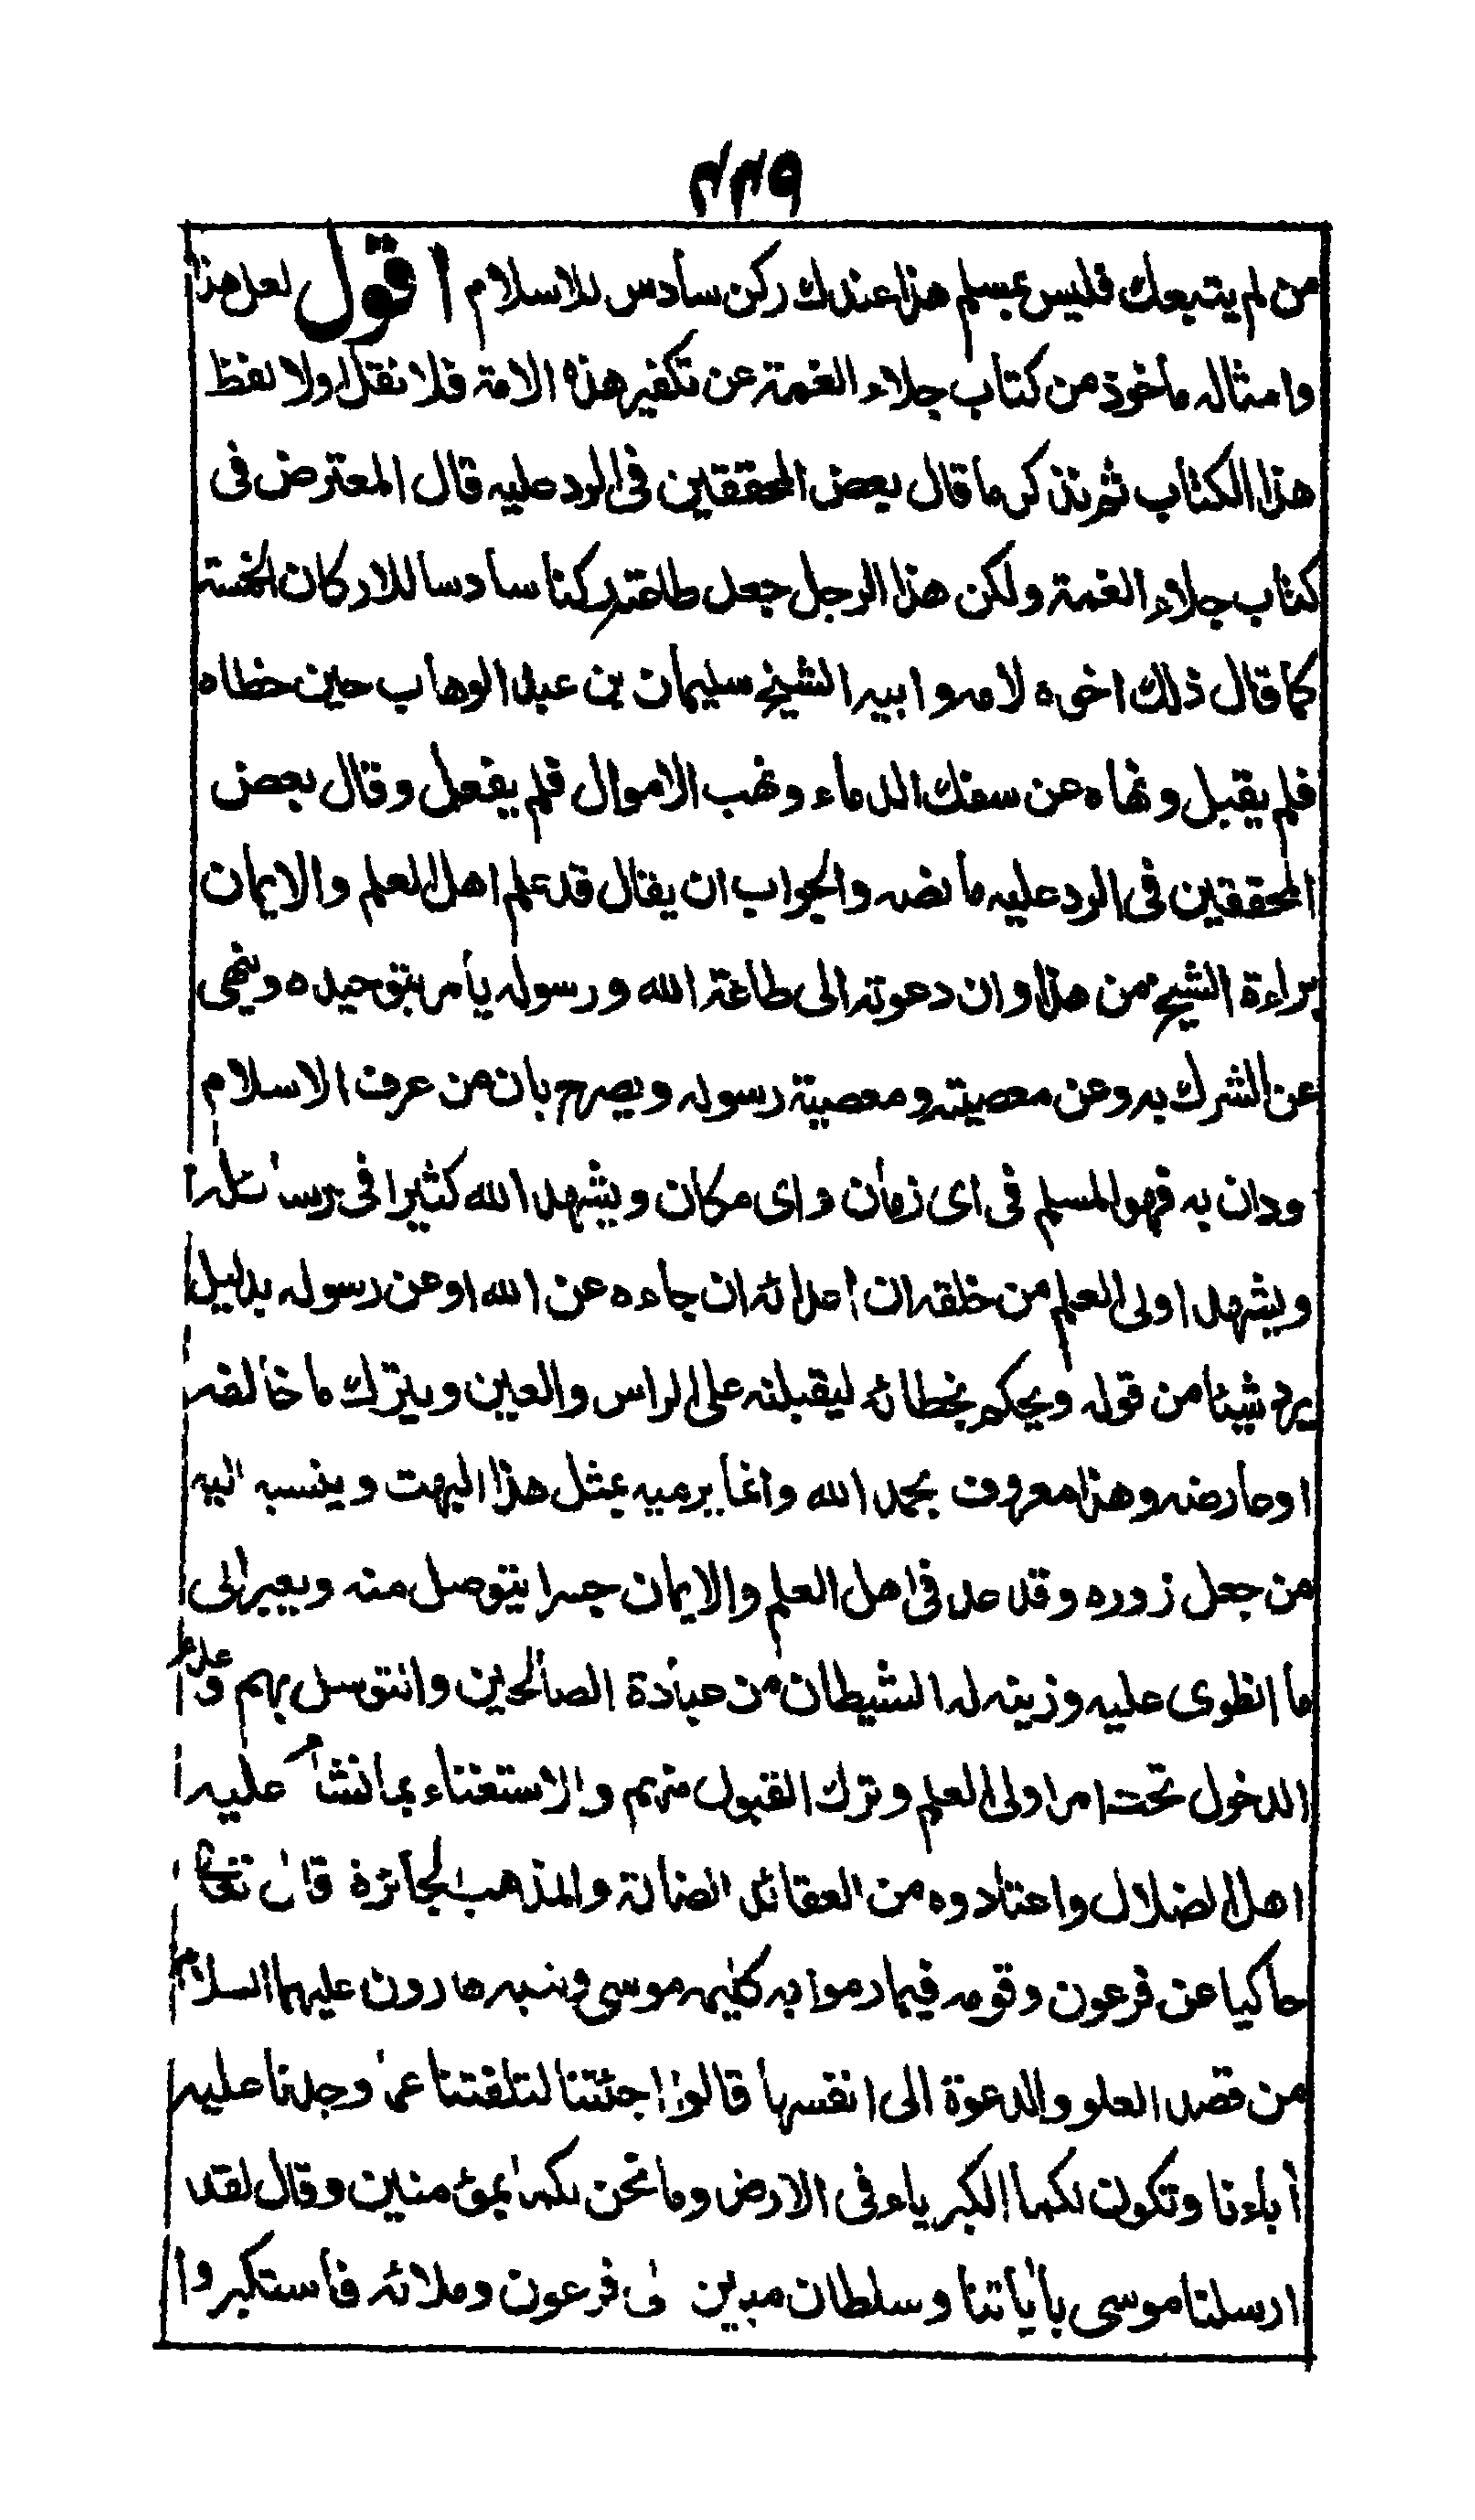 ٤٤٩
من لم يتبعك فليس بمسلم هذا عندك ركن سادس للاسلام اقول لعل هذا
وامثاله ماخوذ من كتاب جلاء الغمة عن تكفير هذه الامة فلا نقل اولا لفظ
هذا الكتاب ثم نذكر ما قال بعض المحققين فى الرد عليه قال المعترض فى
كتاب جلاء الغمة ولكن هذا الرجل جعل طاعته ركنا سادسا للاركان الخمسة
كما قال ذلك اخوه لامه وابيه الشيخ سليمان بن عبد الوهاب حين خطاه
فلم يقبل ونهاه عن سفك الدماء ونهب الاموال فلم يفعل وقال بعض
المحققين فى الرد عليه ما نصه والجواب ان يقال قد علم اهل العلم والايمان
براءة الشيخ من هذا وان دعوته الى طاعة الله ورسوله يأمر بتوحيده وينهى
عن الشرك به وعن معصيته ومعصية رسوله ويصرح بان من عرف الاسلام
ودان به فهو المسلم فى اى زمان واى مكان ويشهد الله كثيرا فى رسائله
ويشهد اولى العلم من خلقه ان اعدائه ان جاءه عن الله او عن رسوله بدليل
يرد شيئا من قوله ويحكم بخطائه ليقبلنه على الراس والعين ويترك ما خالفه
او عارضه وهذا معروف بحمد الله وانما يرميه بمثل هذا البهت وينسبه اليه
من جعل زوره وقدحه فى اهل العلم والايمان جسرا يتوصل منه ويعبر الى
ما انطوى عليه وزينه له الشيطان من عبادة الصالحين والتوسل بهم وعدم
الدخول تحت امر اولى العلم وترك القبول منهم والاستغناء بما نشأ عليه
اهل الضلال واعتادوه من العقائد الضالة والمذهب الجائرة قال تعالى
حاكيا عن فرعون وقومه فيما رموا به كليمه موسى ونبيه هارون عليهما السلام
من قصد العلو والدعوة الى انفسهما قالوا اجئتنا لتلفتنا عما وجدنا عليه
أباءنا وتكون لكما الكبرياء فى الارض وما نحن لكما بمؤمنين وقال لقد
ارسلنا موسى باياتنا وسلطان مبين الى فرعون وملائه فاستكبروا